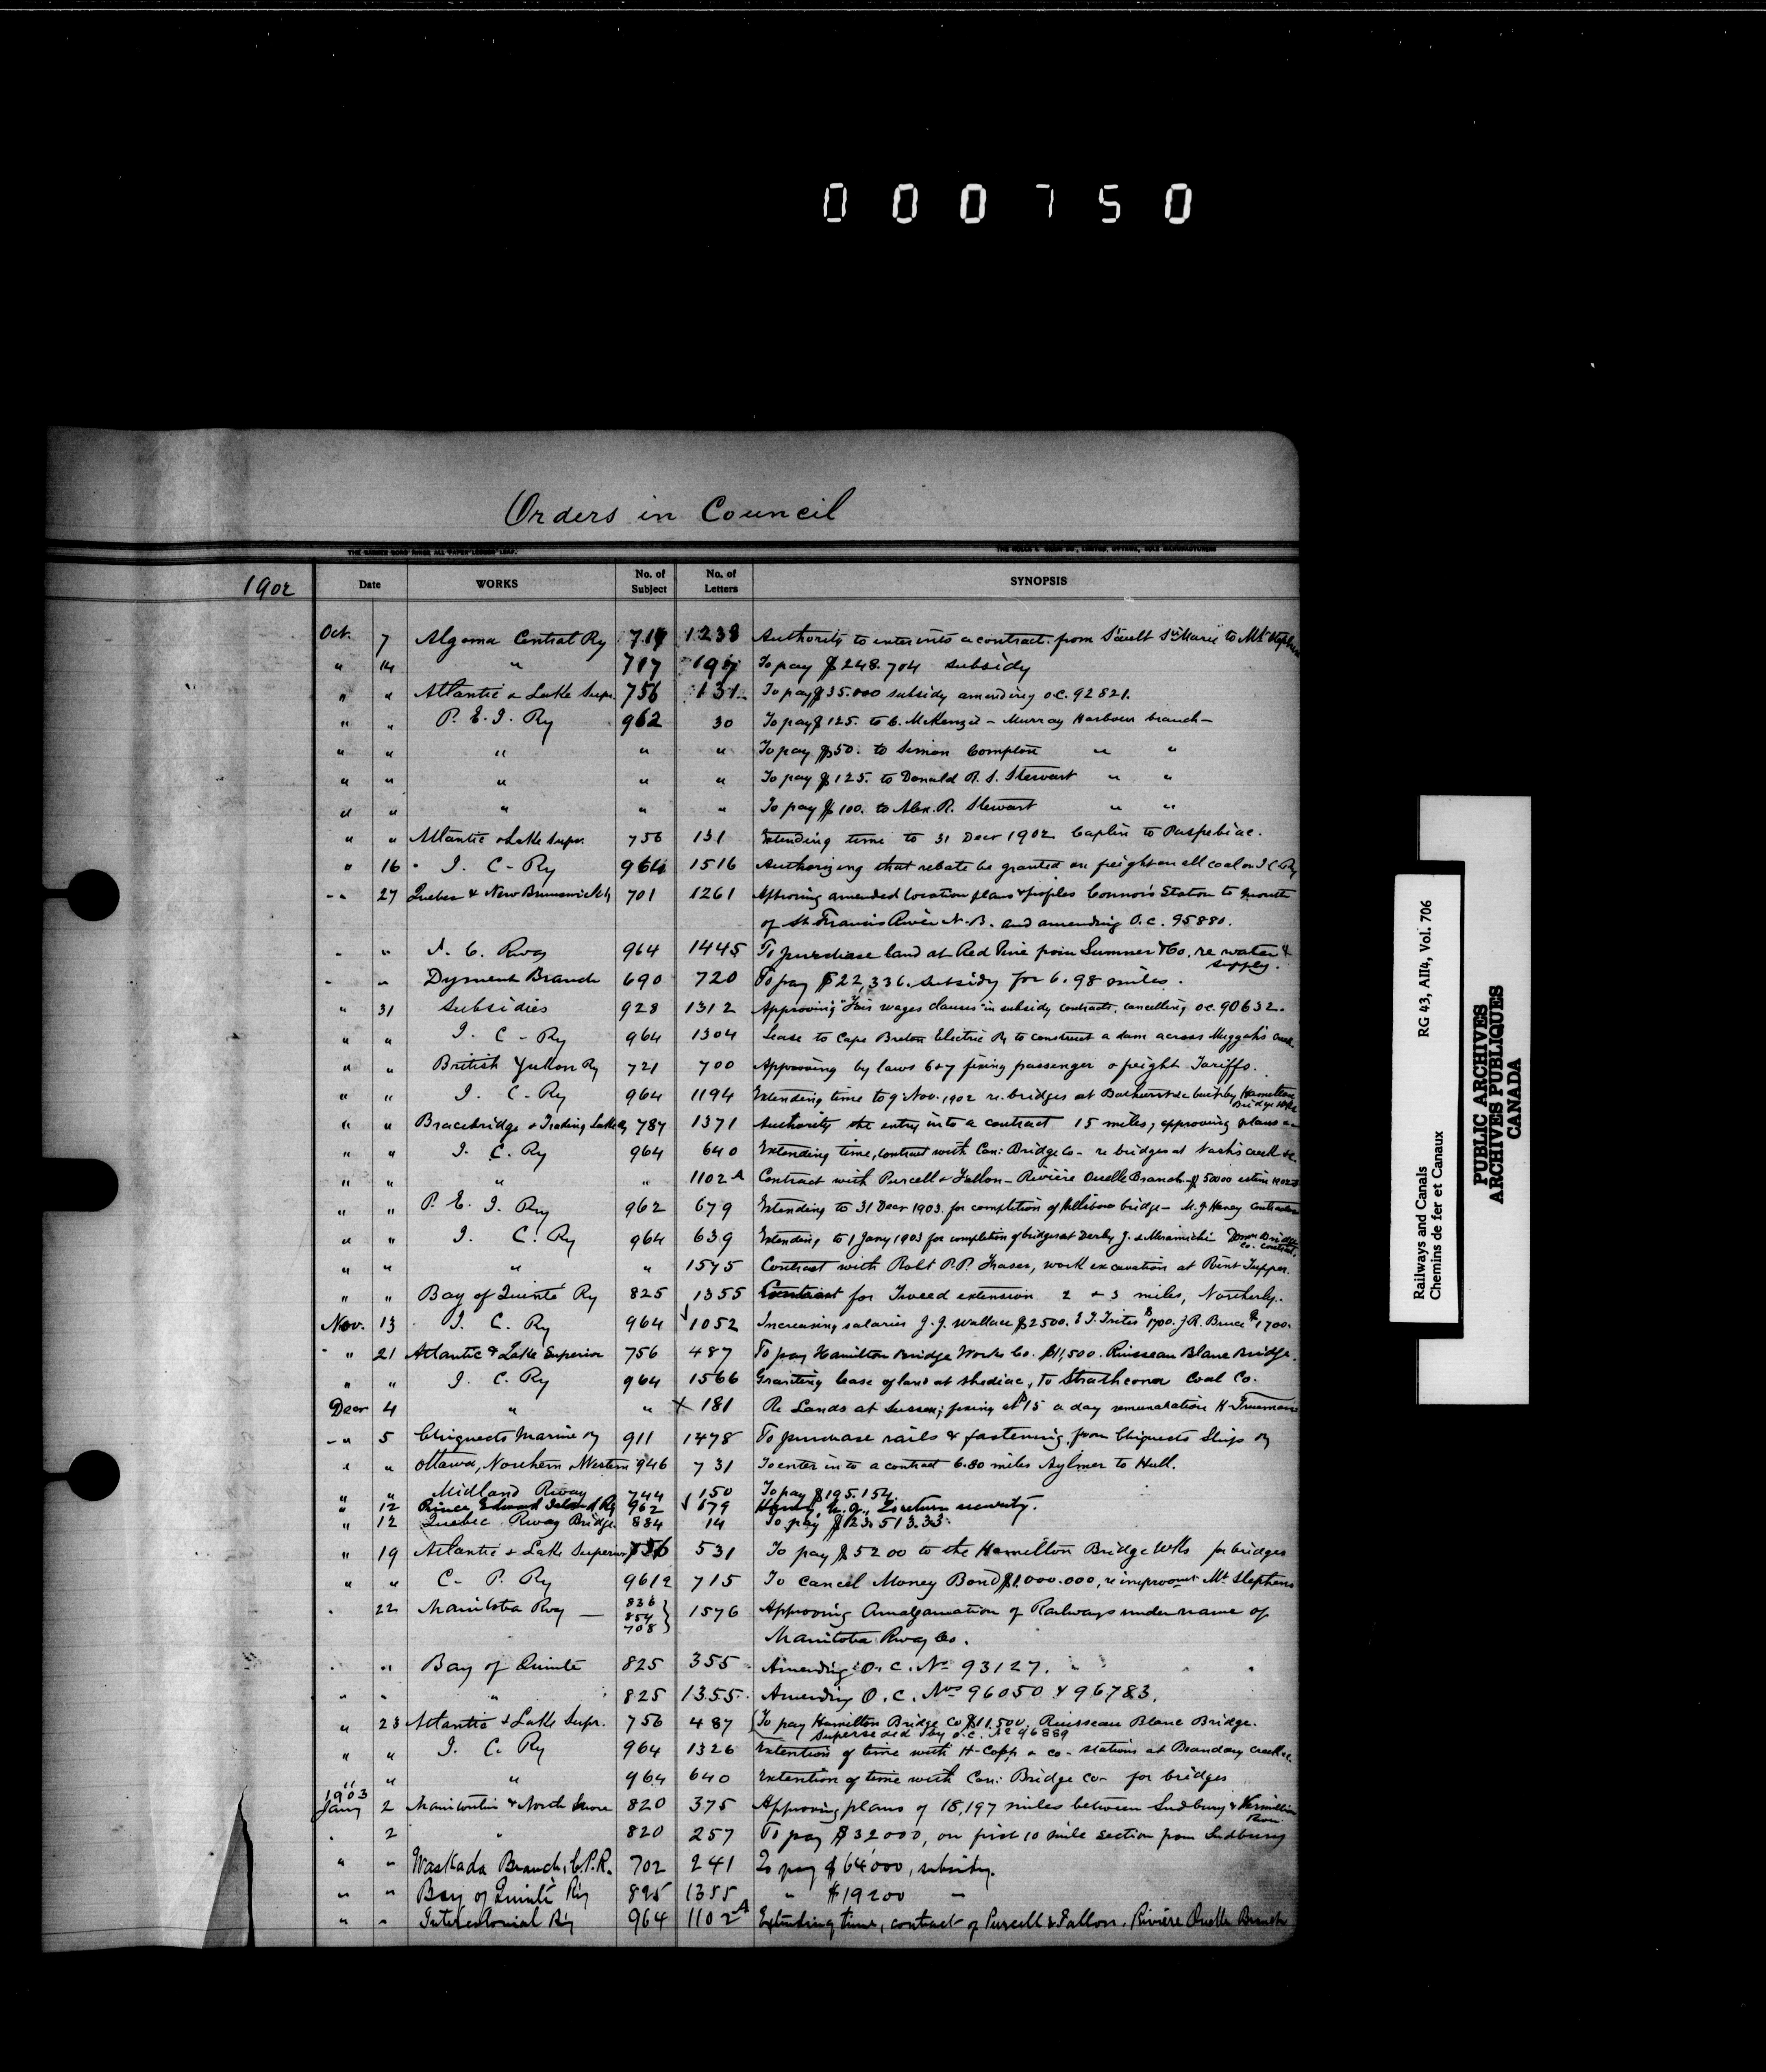 000750
Orders in Council
1902 Date WORKS No. of Subject No. of Letters SYNOPSIS
Oct. 7 Algoma Central Ry 717 1238 Authority to enter into a contract from Sault Ste Marie to Mt Stephen
" 14 " 717 197 To pay $248.704 subsidy
" " Atlantic & Lake Supr. 756 131 To pay $35.000 subsidy amending O.C. 92821.
" " P. E. I. Ry 962 30 To pay $125. to C. McKenzie - Murray Harbour branch -
" " " " " To pay $50. to Simon Compton " "
" " " " " To pay $125. to Donald R. S. Stewart " "
" " " " " To pay $100. to Alex. R. Stewart " "
" " Atlantic & Lake Supr. 756 131 Extending time to 31 Decr 1902 Caplin to Paspebiac.
" 16 I. C. Ry 964 1516 Authorizing that rebate be granted on freight on all coal on I C Ry
" 27 Quebec & New Brunswick Ry 701 1261 Approving amended location plans & profiles Connors Station to mouth
of St. Francis River N.B. and amending O.C. 95880.
" " I. C. Rway 964 1445 To purchase land at Red Pine from Sumner & Co. re water
supply.
" " Dyment Branch 690 720 To pay $22,336. subsidy for 6.98 miles.
" 31 Subsidies 928 1312 Approving "Fair wages clauses" in subsidy contracts, cancelling O.C. 90632.
" " I. C. Ry 964 1304 Lease to Cape Breton Electric Ry to construct a dam across Muggah's Creek.
" " British Yukon Ry 721 700 Approving by laws 6 & 7 fixing passenger & freight Tariffs.
" " I. C. Ry 964 1194 Extending time to 9 Nov. 1902 re bridges at Bathurst &c built by Hamilton
Bridge Wks
" " Bracebridge & Trading Lake Ry 787 1371 Authority the entry into a contract 15 miles, approving plans
" " I. C. Ry 964 640 Extending time, contract with Can: Bridge Co - re bridges at Nash's creek &c.
" " " " 1102 A Contract with Purcell & Fallon - Riviere Ouelle Branch - $50000
" " P. E. I. Ry 962 679 Extending to 31 Decr 1903. for completion of Hillsboro bridge - M. J. Haney Contractor
" " I. C. Ry 964 639 Extending to 1 Jany 1903 for completion of bridges at Derby J. & Miramichi Domn Bridge
Co. contract.
" " " " 1575 Contract with Robt P.P. Fraser, work excavation at Point Tupper.
" " Bay of Quinté Ry 825 1355 Contract for Tweed extension 2 & 3 miles, Northerly.
Nov. 13 I. C. Ry 964 1052 Increasing salaries J. J. Wallace $2500. E. T. Trites $1700. J. R. Bruce $1700.
" 21 Atlantic & Lake Superior 756 487 To pay Hamilton Bridge Works Co. $11,500. Ruisseau Blanc Bridge.
" " I. C. Ry 964 1566 Granting lease of land at Shediac, to Strathcona Coal Co.
Decr 4 " " X 181 Re Lands at Sussex; fixing at $15 a day remuneration H. Trueman
" 5 Chignecto Marine Ry 911 1478 To purchase rails & fastenings from Chignecto Ship Ry
" " Ottawa, Northern & Western 946 731 To enter into a contract 6.80 miles Aylmer to Hull.
" " Midland Rway 744 150 To pay $195.154.
" 12 Prince Edward Island Ry 962 679 Haney, M. J., To return security.
" 12 Quebec Rway Bridge 884 14 To pay $123.513.33.
" 19 Atlantic & Lake Superior 756 531 To pay $5200 to the Hamilton Bridge Wks for bridges
" " C. P. Ry 9612 715 To cancel Money Bond $1.000.000, re improvmt Mt Stephens
" 22 Manitoba Rway — 836
854
708 } 1576 Approving Amalgamation of Railways under name of
Manitoba Rway Co.
" " Bay of Quinte 825 355 Amending O.C. No 93127.
" " " 825 1355 Amending O.C. Nos 96050 & 96783.
" 23 Atlantic & Lake Supr. 756 487 To pay Hamilton Bridge Co $11,500. Ruisseau Blanc Bridge.
Superseded by O.C. No 96889
" " I. C. Ry 964 1326 Extention of time with H. Copp & Co - stations at Boundary creek &c.
" " " 964 640 Extention of time with Can: Bridge Co - for bridges
1903
Jany 2 Manitoulin & North Shore 820 375 Approving plans of 18,197 miles between Sudbury & Vermillion
River
" 2 " 820 257 To pay $32000, on first 10 mile section from Sudbury
" " Waskada Branch, C.P.R. 702 241 To pay $64000, subsidy.
" " Bay of Quinté Ry 825 1355 " $19200 "
" " Intercolonial Ry 964 1102 A Extending time, contract of Purcell & Fallon, Rivière Ouelle Branch
Railways and Canals RG 43, AII4, Vol. 706
Chemins de fer et Canaux
PUBLIC ARCHIVES
ARCHIVES PUBLIQUES
CANADA